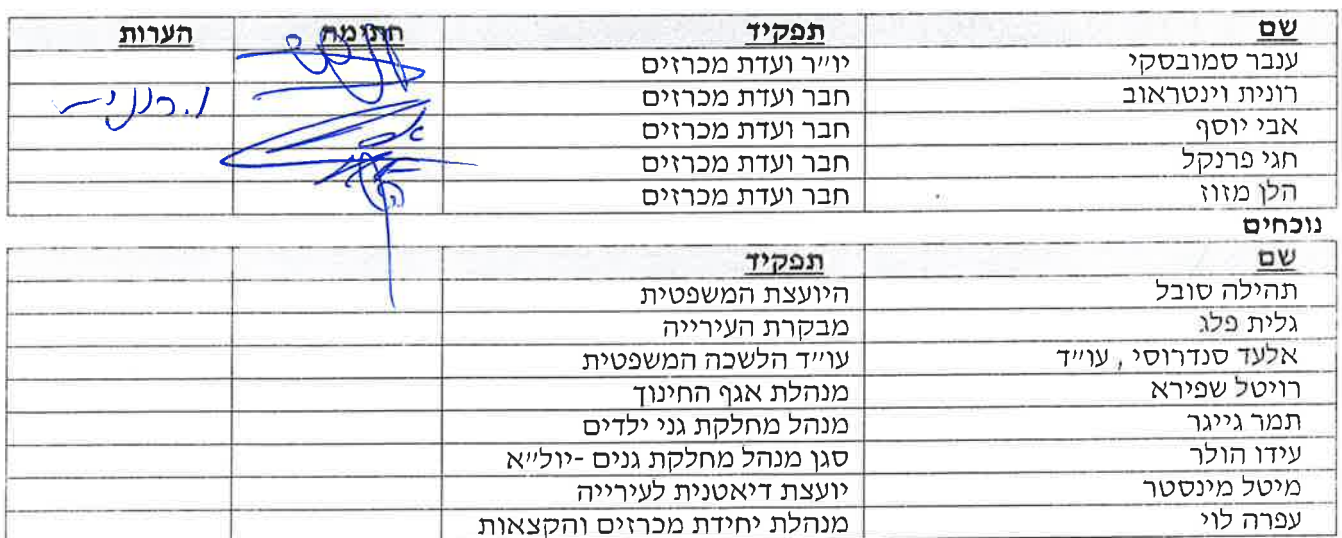 שם תפקיד חתימה הערות
ענבר סמובסקי יו״ר ועדת מכרזים
רונית וינטראוב חבר ועדת מכרזים
אבי יוסף חבר ועדת מכרזים
חגי פרנקל חבר ועדת מכרזים
הלן מזוז חבר ועדת מכרזים
נוכחים
שם תפקיד
תהילה סובל היועצת המשפטית
גלית פלג מבקרת העירייה
אלעד סנדרוסי , עו״ד עו״ד הלשכה המשפטית
רויטל שפירא מנהלת אגף החינוך
תמר גייגר מנהל מחלקת גני ילדים
עידו הולר סגן מנהל מחלקת גנים -יול״א
מיטל מינסטר יועצת דיאטנית לעירייה
עפרה לוי מנהלת יחידת מכרזים והקצאות